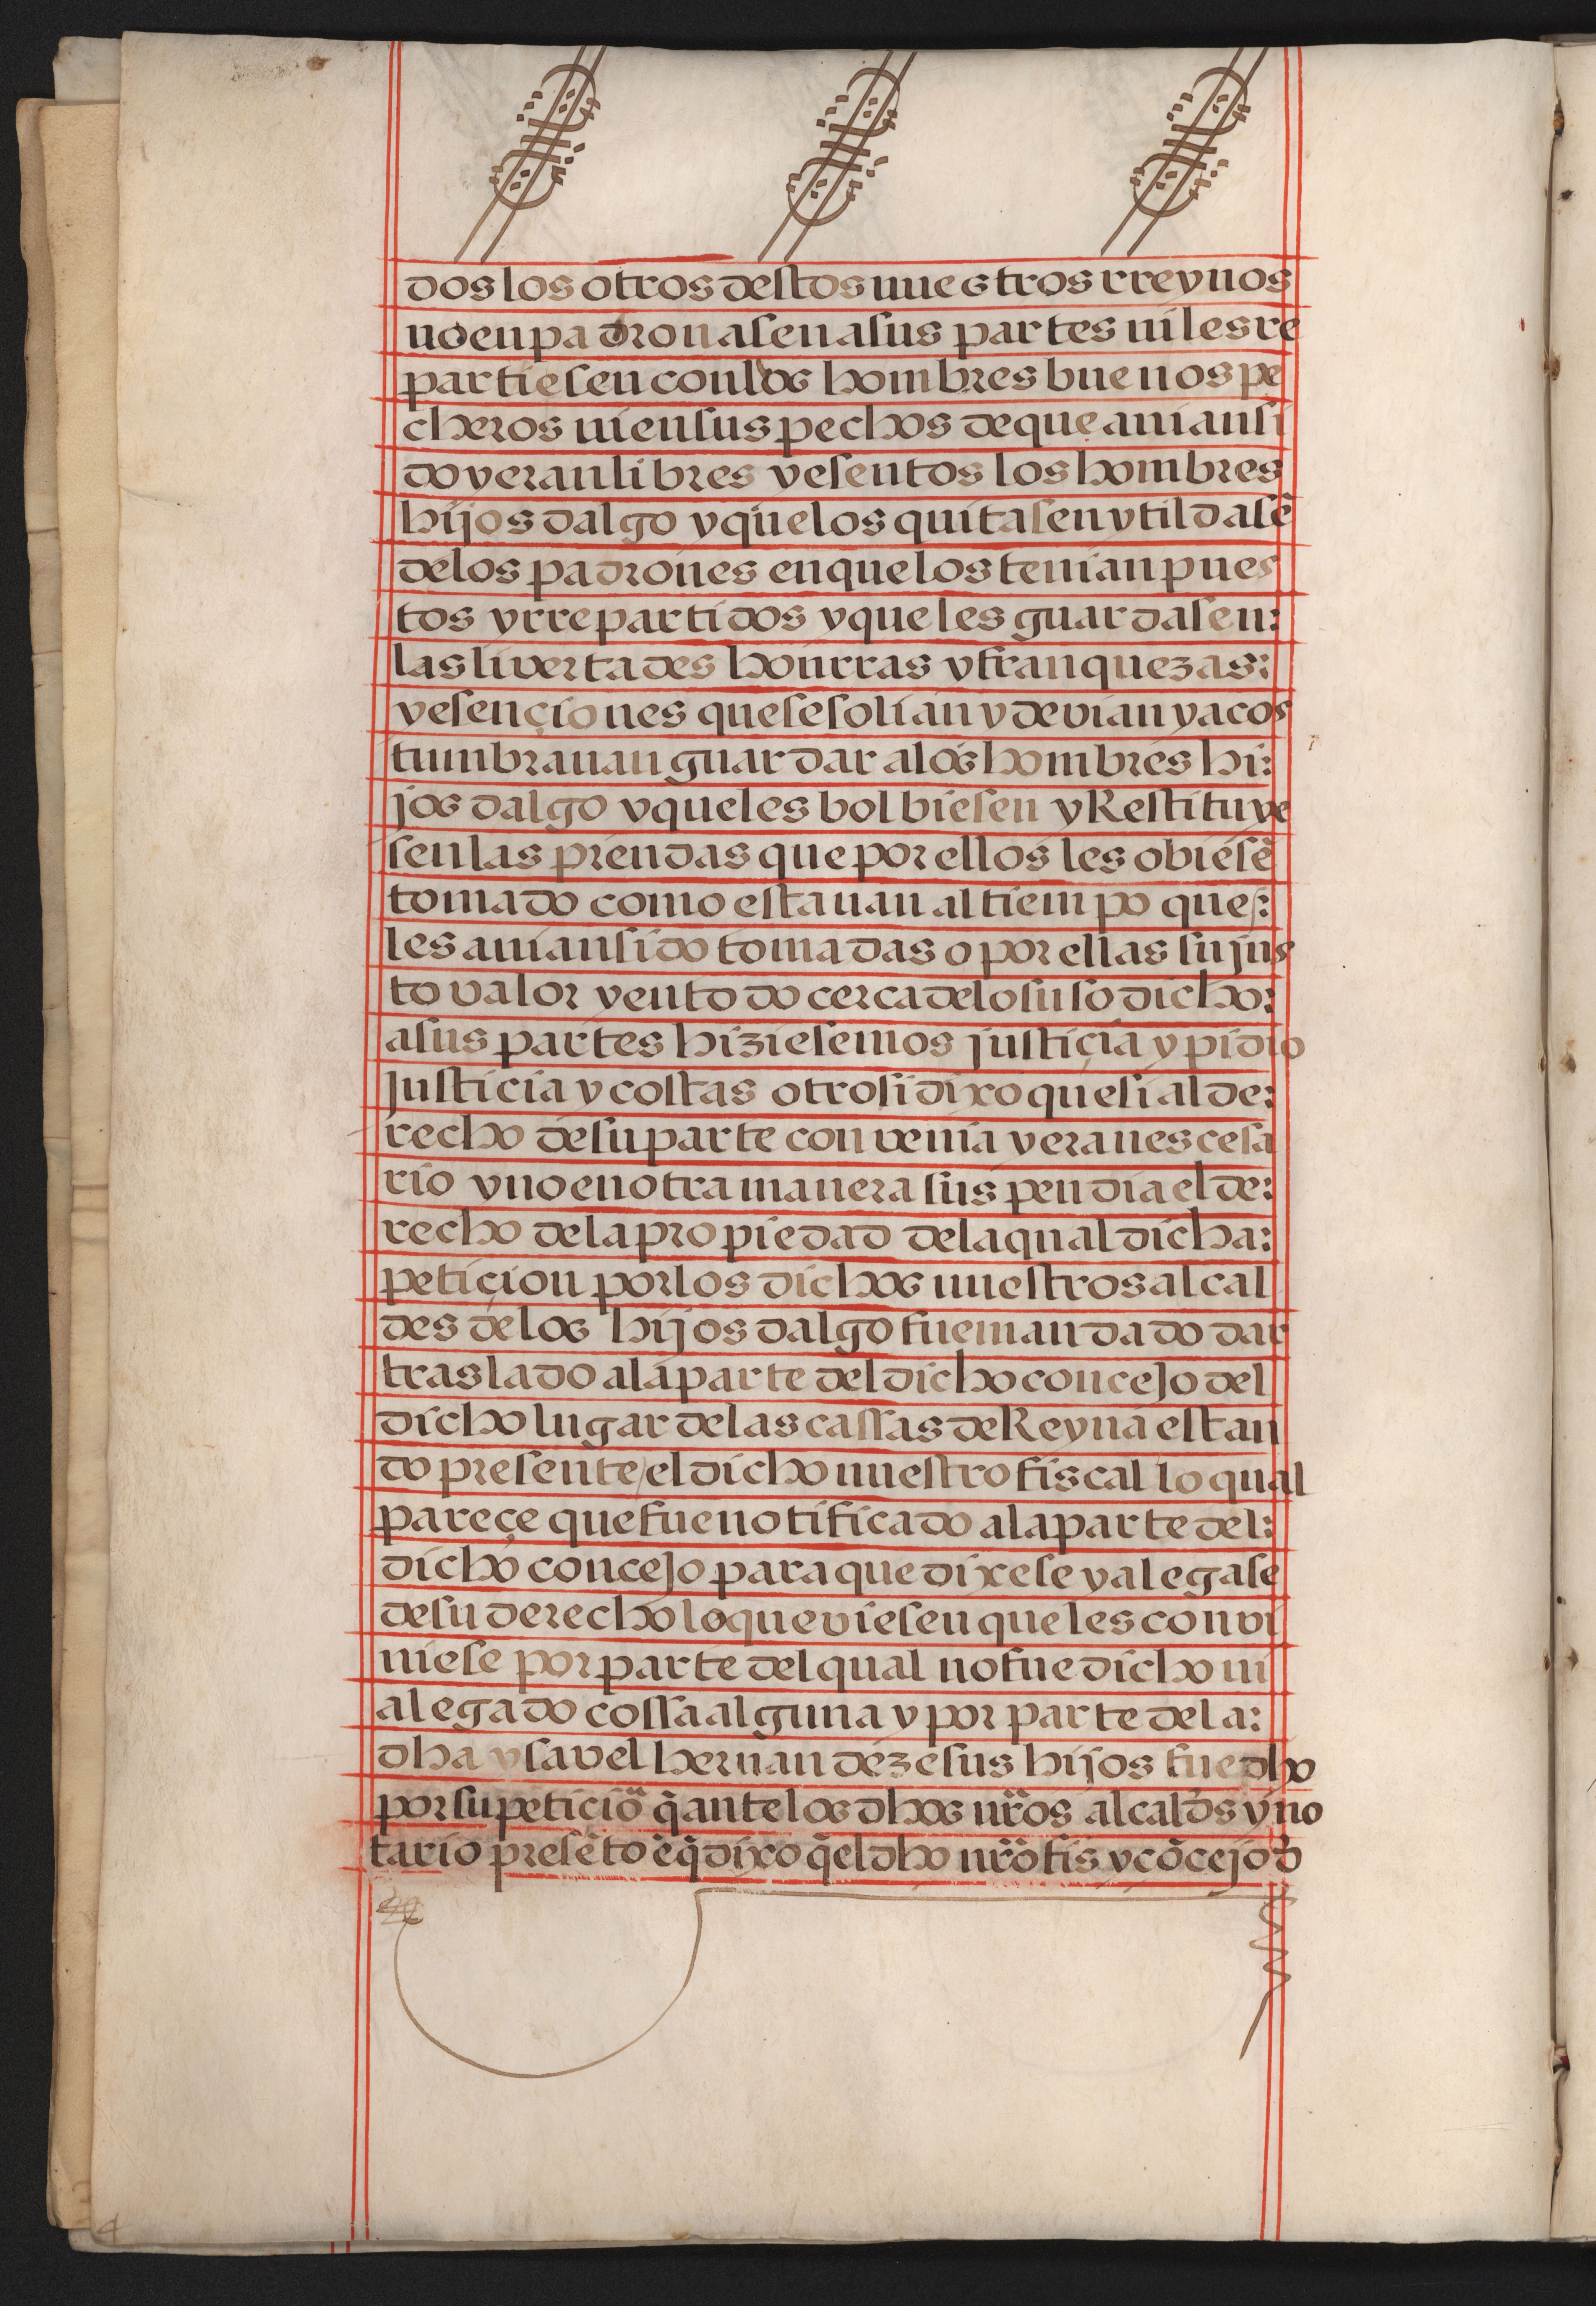 dos los otros destos nuestros rreynos
no enpadronasen a sus partes ni les re
partiesen con los hombres buenos pe
cheros ni en sus pechos de que auian si
do y eran libres y esentos los hombres
hijos dalgo y que los quitasen y tildasẽ
de los padrones en que los tenian pues
tos y rrepartidos y que les guardasen:
las livertades honrras y franquezas:
y esençiones que se solian y devian y acos
tumbrauan guardar a los hombres hi:
jos dalgo y que les bolbiesen y Restituye
sen las prendas que por ellos les obiesẽ
tomado como estauan al tiempo que:
les auian sido tomadas o por ellas su jus
to valor y en todo cerca de lo suso dicho:
a sus partes hiziesemos justiçia y pidio
justicia y costas otrosi dixo que si al de:
recho de su parte convenia y era nescesa
rio y no en otra manera suspendia el de:
recho de la propiedad de la qual dicha:
petiçion por los dichos nuestros alcal
des de los hijos dalgo fue mandado dar
traslado a la parte del dicho concejo del
dicho lugar de las cassas de Reyna estan
do presente / el dicho nuestro fiscal lo qual
pareçe que fue notificado a la parte del:
dicho concejo para que dixese y alegase
de su derecho lo que viesen que les convi
niese por parte del qual no fue dicho ni
alegado cossa alguna y por parte de la:
dha ysavel hernandez e sus hijos fue dho
por su peticiõ q̃ ante los dhos nr̃os alcaldẽs y no
tario presẽto ẽ q̃ dixo q̃ el dho nr̃o fis y cõcejo d̃
4